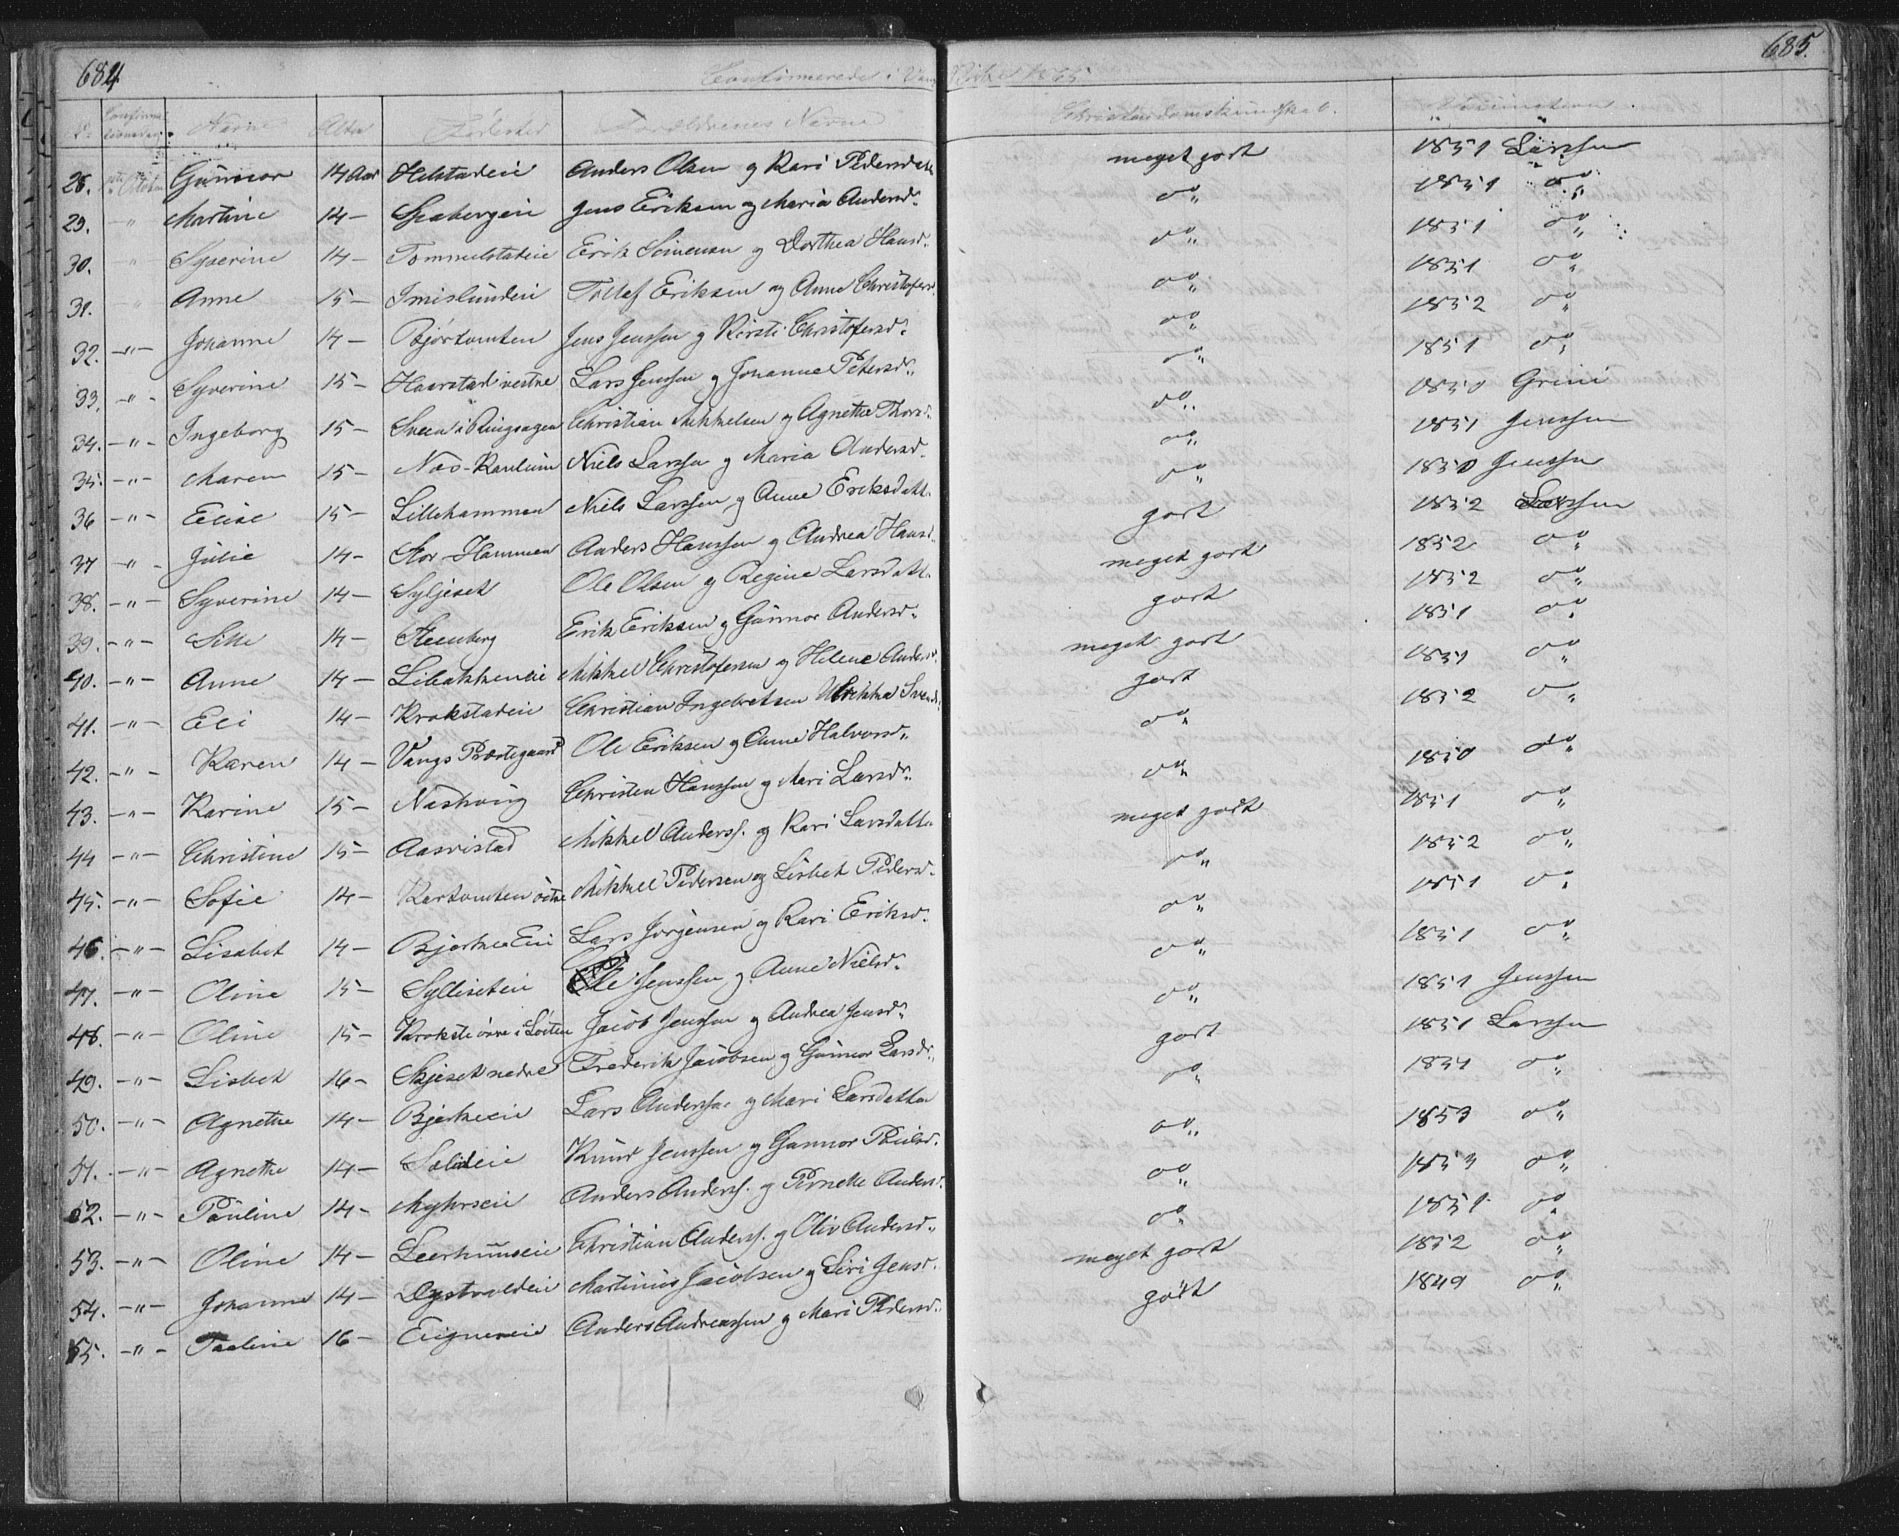 684
685.
Confirmerede i Vang Kirke 1865
Navne Alder Fødested Forældrenes Navne Christendomskundskab. Vaccination.
28. Gunnor 14 Aar Helstadeie Anders Olsen og Kari Pedersdatt meget godt 1851 Larssen
29. " Martine 14 – Spabergeie Jens Eriksen og Maria Andersd. do 1851 do
30. " Syverine 14 – Tommelstadeie Erik Simensen og Dorthea Hansd. do 1851 do
31. Anne 15 – Imislundeie Tollef Eriksen og Anne Christofersd. do 1851 do
32. –"– Johanne 14 – Bjørtomten Jens Jenssen og Kirsti Christofersd. do 1852 do
33. –"– Syverine 15 – Haarstad vestre Lars Jenssen og Johanne Petersd. do 1851 do
34. –"– Ingeborg 15 – Sveen i Ringsager Christian Mikkelsen og Agnethe Thorsd. do 1850 Grini
35. –"– Maren 15 – Næs- Niels Larssen og Maria Andersd. do 1851 Jenssen
36 –"– Elise 15 – Lillehammer Niels Larssen og Anne Eriksdatt. do 1850 Jenssen
37 –"– Julie 14 – Stor-Hammer Anders Hanssen og Andrea Hansd. godt 1852 Larssen
38. –"– Syverine 14 – Syljeset Ole Olsen og Regine Larsdatt. meget godt 1852 do
39. –"– Sille 14 – Steenberg Erik Eriksen og Gunnor Andersd. godt 1852 do
40. –"– Anne 14 – Libakkeneie Mikkel Christofersen og Helene Andersd. meget godt 1851 do
41. –"– Eli 14 – Krokstadeie Christian Ingebretsen Ulrikka Svends. godt 1851 do
42. –"– Karen 14 – Vangs Præstegaard Ole Eriksen og Anne Halvorsd. do 1852 do
43. –"– Karine 15 – Nashoug Christen Hanssen og Mari Larsd. do 1850 do
44 –"– Christine 15 – Aasvistad Mikkel Anderss. og Kari Larsdatt. meget godt 1851 do
45. –"– Sofie 14 – Kortomten østre Mikkel Pedersen og Lisbet Pedersd. do 1852 do
46 –"– Lisabet 14 – Bjerke Eie Lars Jørgensen og Kari Eriksd. do 1851 do
47. –"– Oline 15 – Sylliseteie Ole Jenssen og Anne Nielsd. do 1851 do
48. –"– Oline 15 – Krokste øvre i Løiten Jacob Jenssen og Andrea Jensd. do 1851 Jenssen
49. –"– Lisbet 16 – Skjeset nedre Frederik Jacobsen og Gunnor Larsd. godt 1851 Larssen
50. –"– Agnethe 14 – Bjerkeeie Lars Anderssen og Mari Larsdatter do 1851 do
51. –"– Agnethe 14 – Knud Jenssen og Gunnor Paulsd. do 1853 do
52. –"– Pauline 14 – Myhrseie Anders Anderss. og Pernelle Andersd. do 1853 do
53. –"– Oline 14 – Leerhuuseie Christian Anderss. og Oliv Andersd. do 1851 do
54. –"– Johanne 14 – Dystvoldeie Martinus Jacobsen og Siri Jensd. meget godt 1852 do
55. –"– Pauline 16 – Andersen Andreassen og Mari Pedersd. godt 1849 do